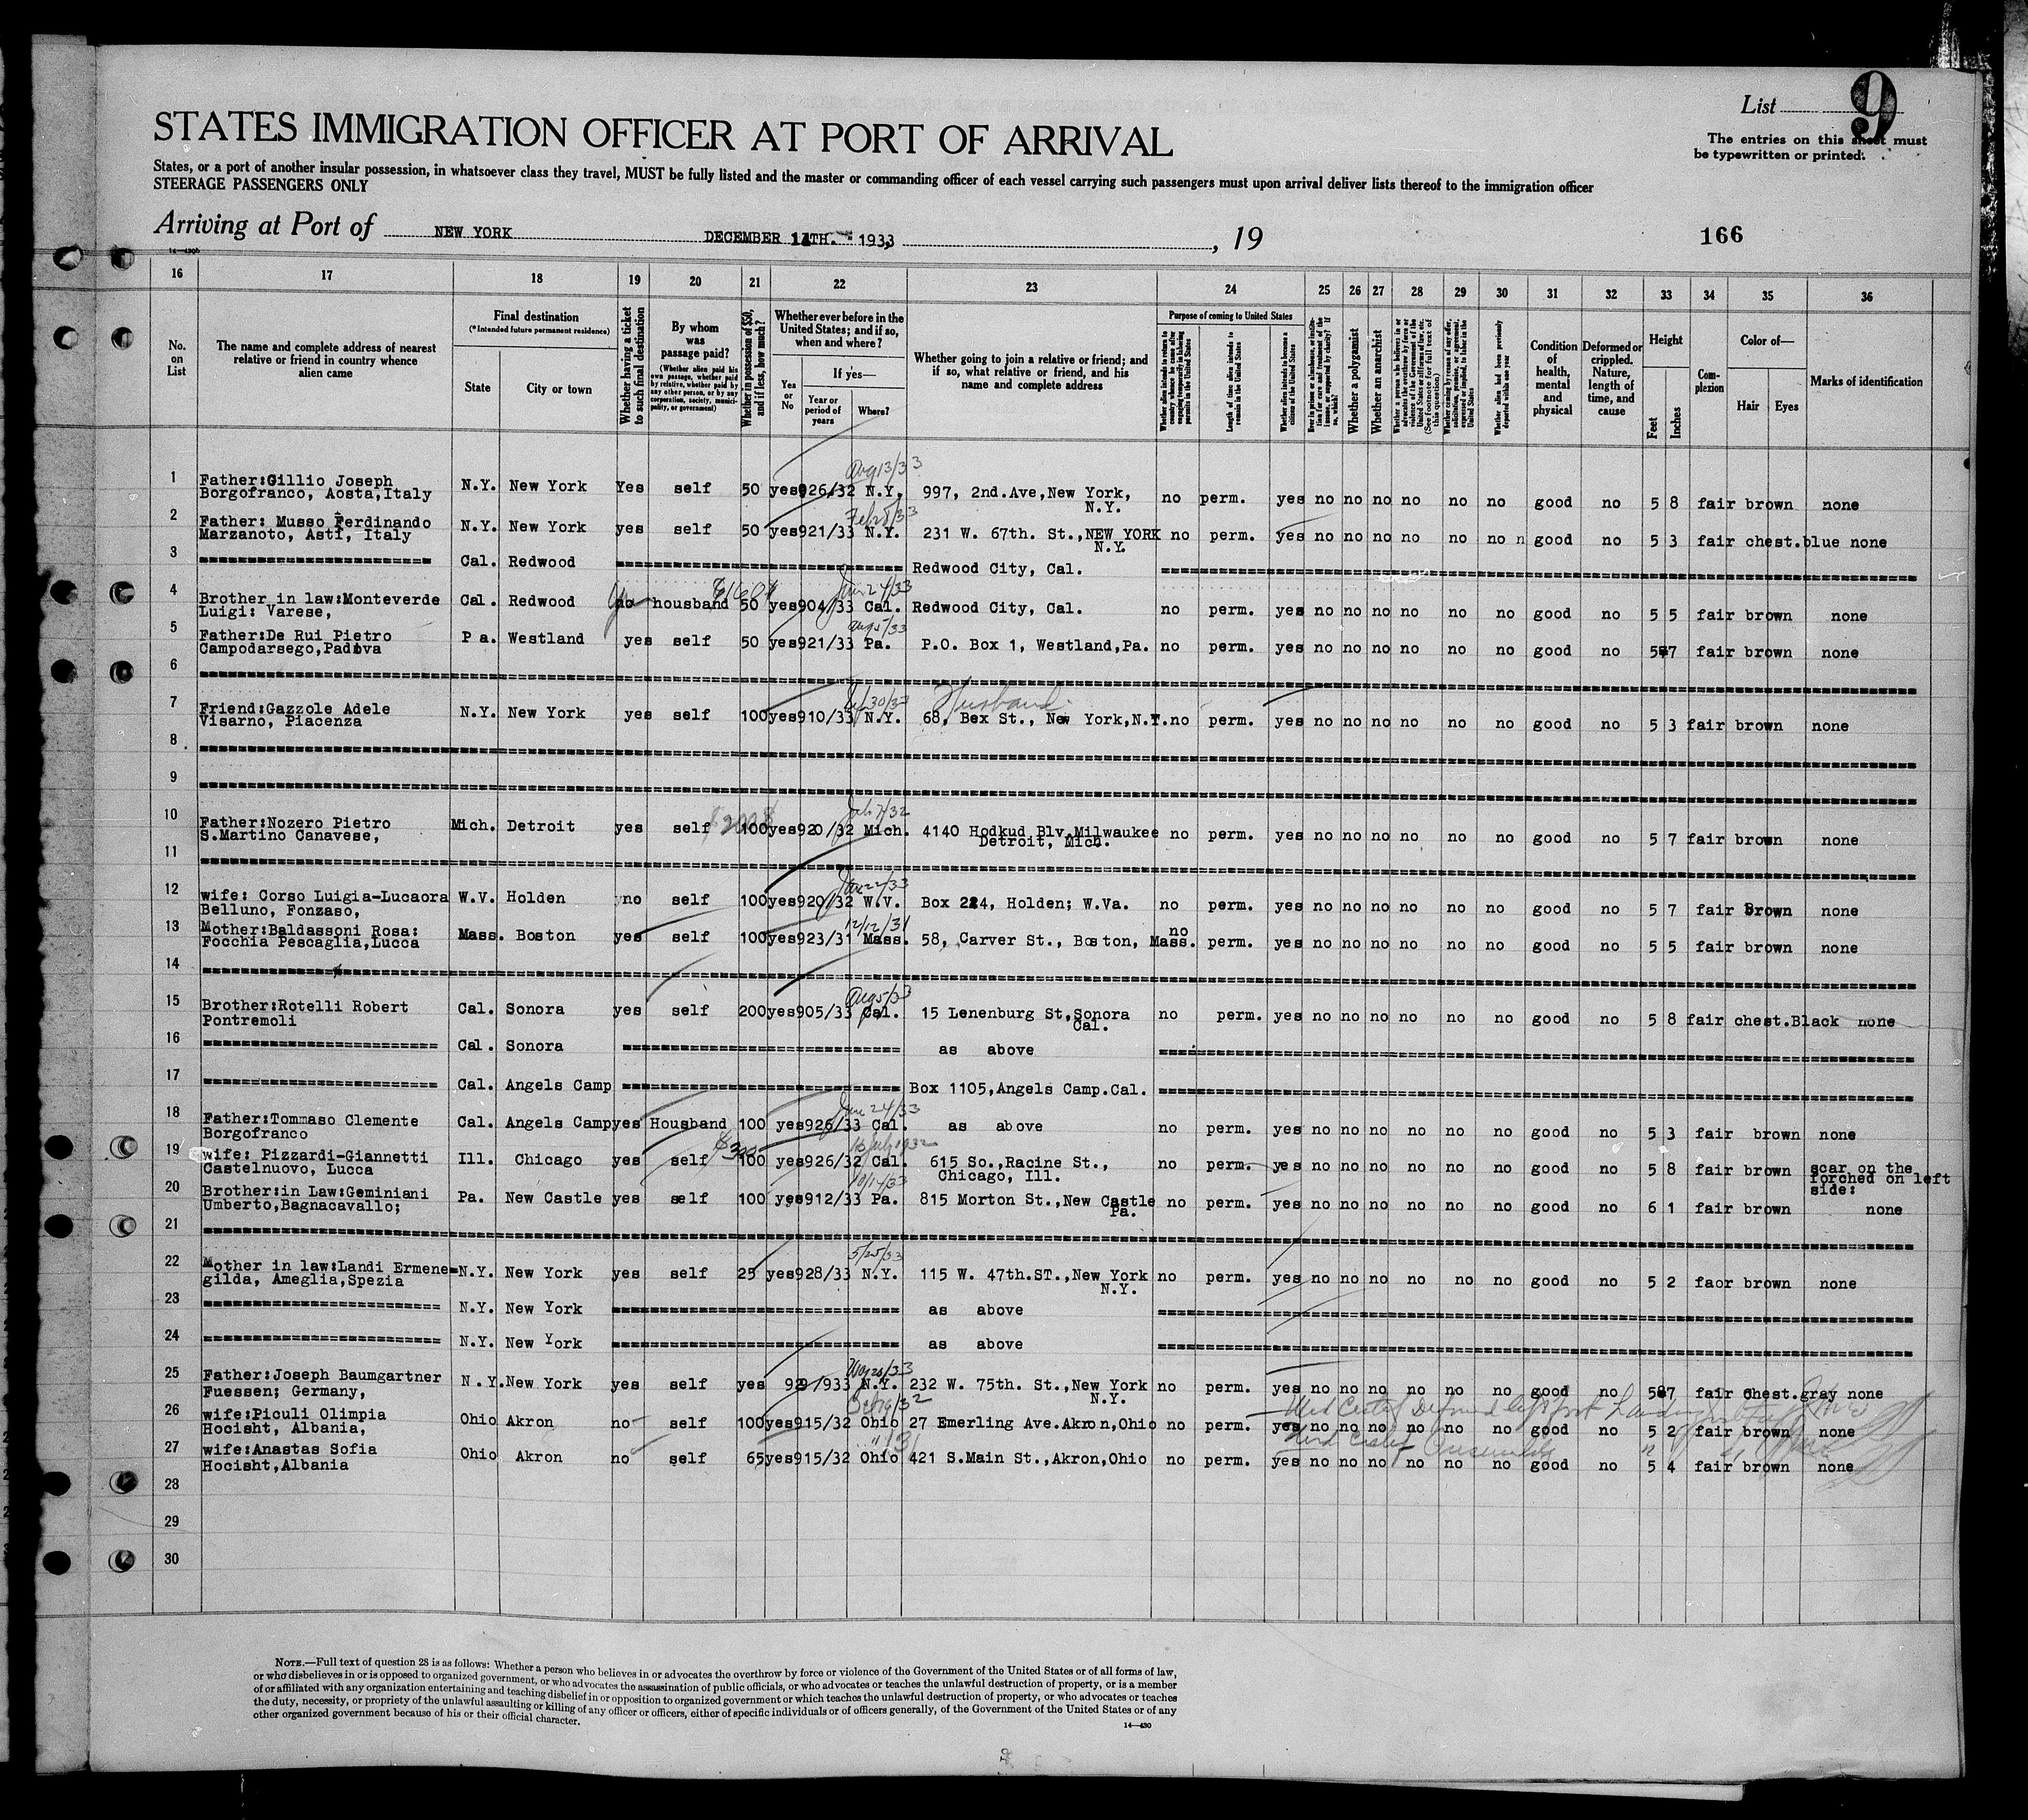 List 9
STATES IMMIGRATION OFFICER AT PORT OF ARRIVAL
The entries on this sheet must
be typewritten or printed.
States, or a port of another insular possession, in whatsoever class they travel, MUST be fully listed and the master or commanding officer of each vessel carrying such passengers must upon arrival deliver lists thereof to the immigration officer
STEERAGE PASSENGERS ONLY
Arriving at Port of NEW YORK DECEMBER 14TH. 1933, 19 166
16 17 18 19 20 21 22 23 24 25 26 27 28 29 30 31 32 33 34 35 36
No. on List
The name and complete address of nearest relative or friend in country whence alien came
Final destination
(*Intended future permanent residence)
State
City or town
Whether having a ticket to such final destination
By whom was passage paid?
(Whether alien paid his own passage, whether paid by relative, whether paid by any other person, or by any corporation, society, municipality, or government)
Whether in possession of $50, and if less, how much?
Whether ever before in the United States; and if so, when and where?
Yes or No
If yes—
Year or period of years
Where?
Whether going to join a relative or friend; and if so, what relative or friend, and his name and complete address
Purpose of coming to United States
Length of time alien intends to remain in the United States
Whether alien intends to become a citizen of the United States
Whether a polygamist
Whether an anarchist
Condition of health, mental and physical
Deformed or crippled. Nature, length of time, and cause
Height
Feet
Inches
Complexion
Color of—
Hair
Eyes
Marks of identification
1 Father:Gillio Joseph N.Y. New York Yes self 50 yes 926/32 N.Y. Aug 13/33 997, 2nd.Ave,New York, no perm. yes no no no no no no good no 5 8 fair brown none
Borgofranco, Aosta,Italy N.Y.
2 Father: Musso Ferdinando N.Y. New York yes self 50 yes 921/33 N.Y. 231 W. 67th. St.,NEW YORK no perm. yes no no no no no no n good no 5 3 fair chest.blue none
Marzanoto, Asti, Italy N.Y.
3 Cal. Redwood Redwood City, Cal.
4 Brother in law:Monteverde Cal. Redwood no housband 50 yes 904/33 Cal. Redwood City, Cal. no perm. yes no no no no no no good no 5 5 fair brown none
Luigi: Varese,
5 Father:De Rui Pietro Pa. Westland yes self 50 yes 921/33 Pa. P.O. Box 1, Westland,Pa. no perm. yes no no no no no no good no 5 7 fair brown none
Campodarsego,Padova
6
7 Friend:Gazzole Adele N.Y. New York yes self 100 yes 910/33 N.Y. Husband 68, Bex St., New York,N.Y. no perm. yes no no no no no no good no 5 3 fair brown none
Visarno, Piacenza
8
9
10 Father:Nozero Pietro Mich. Detroit yes self 100 yes 920/32 Mich. 4140 Hodkud Blv,Milwaukee no perm. yes no no no no no no good no 5 7 fair brown none
S.Martino Canavese, Detroit, Mich.
11
12 wife: Corso Luigia-Lucaora W.V. Holden no self 100 yes 920/32 W.V. Box 224, Holden; W.Va. no perm. yes no no no no no no good no 5 7 fair Brown none
Belluno, Fonzaso,
13 Mother:Baldassoni Rosa: Mass. Boston yes self 100 yes 923/31 Mass. 12/12/31 58, Carver St., Boston, Mass. no perm. yes no no no no no no good no 5 5 fair brown none
Focchia Pescaglia,Lucca
14
15 Brother:Rotelli Robert Cal. Sonora yes self 200 yes 905/33 Cal. Aug 5/33 15 Lenenburg St,Sonora no perm. yes no no no no no no good no 5 8 fair chest.Black none
Pontremoli Cal.
16 Cal. Sonora as above
17 Cal. Angels Camp Box 1105,Angels Camp.Cal.
18 Father:Tommaso Clemente Cal. Angels Camp yes Housband 100 yes 926/33 Cal. as above no perm. yes no no no no no no good no 5 3 fair brown none
Borgofranco
19 wife: Pizzardi-Giannetti Ill. Chicago yes self 100 yes 926/32 Cal. 615 So.,Racine St., no perm. yes no no no no no no good no 5 8 fair brown scar on the
Castelnuovo, Lucca Chicago, Ill. forched on left
side:
20 Brother:in Law:Geminiani Pa. New Castle yes self 100 yes 912/33 Pa. 10/14/33 815 Morton St.,New Castle no perm. yes no no no no no no good no 6 1 fair brown none
Umberto,Bagnacavallo; Pa.
21
22 Mother in law:Landi Ermene= N.Y. New York yes self 25 yes 928/33 N.Y. 115 W. 47th.ST.,New York no perm. yes no no no no no no good no 5 2 faor brown none
gilda, Ameglia,Spezia N.Y.
23 N.Y. New York as above
24 N.Y. New York as above
25 Father:Joseph Baumgartner N.Y. New York yes self yes 929/933 N.Y. 232 W. 75th. St.,New York no perm. yes no no no no no no good no 5 7 fair chest.gray none
Fuessen; Germany, N.Y.
26 wife:Piculi Olimpia Ohio Akron no self 100 yes 915/32 Ohio 27 Emerling Ave.Akron,Ohio no perm. yes no no no no no no good no 5 2 fair brown none
Hocisht, Albania,
27 wife:Anastas Sofia Ohio Akron no self 65 yes 915/32 Ohio 421 S.Main St.,Akron,Ohio no perm. yes no no no no no no good no 5 4 fair brown none
Hocisht,Albania
28
29
30
NOTE.—Full text of question 28 is as follows: Whether a person who believes in or advocates the overthrow by force or violence of the Government of the United States or of all forms of law,
or who disbelieves in or is opposed to organized government, or who advocates the assassination of public officials, or who advocates or teaches the unlawful destruction of property, or is a member
of or affiliated with any organization entertaining and teaching disbelief in or opposition to organized government or which teaches the unlawful destruction of property, or who advocates or teaches
the duty, necessity, or propriety of the unlawful assaulting or killing of any officer or officers, either of specific individuals or of officers generally, of the Government of the United States or of any
other organized government because of his or their official character.
14—430